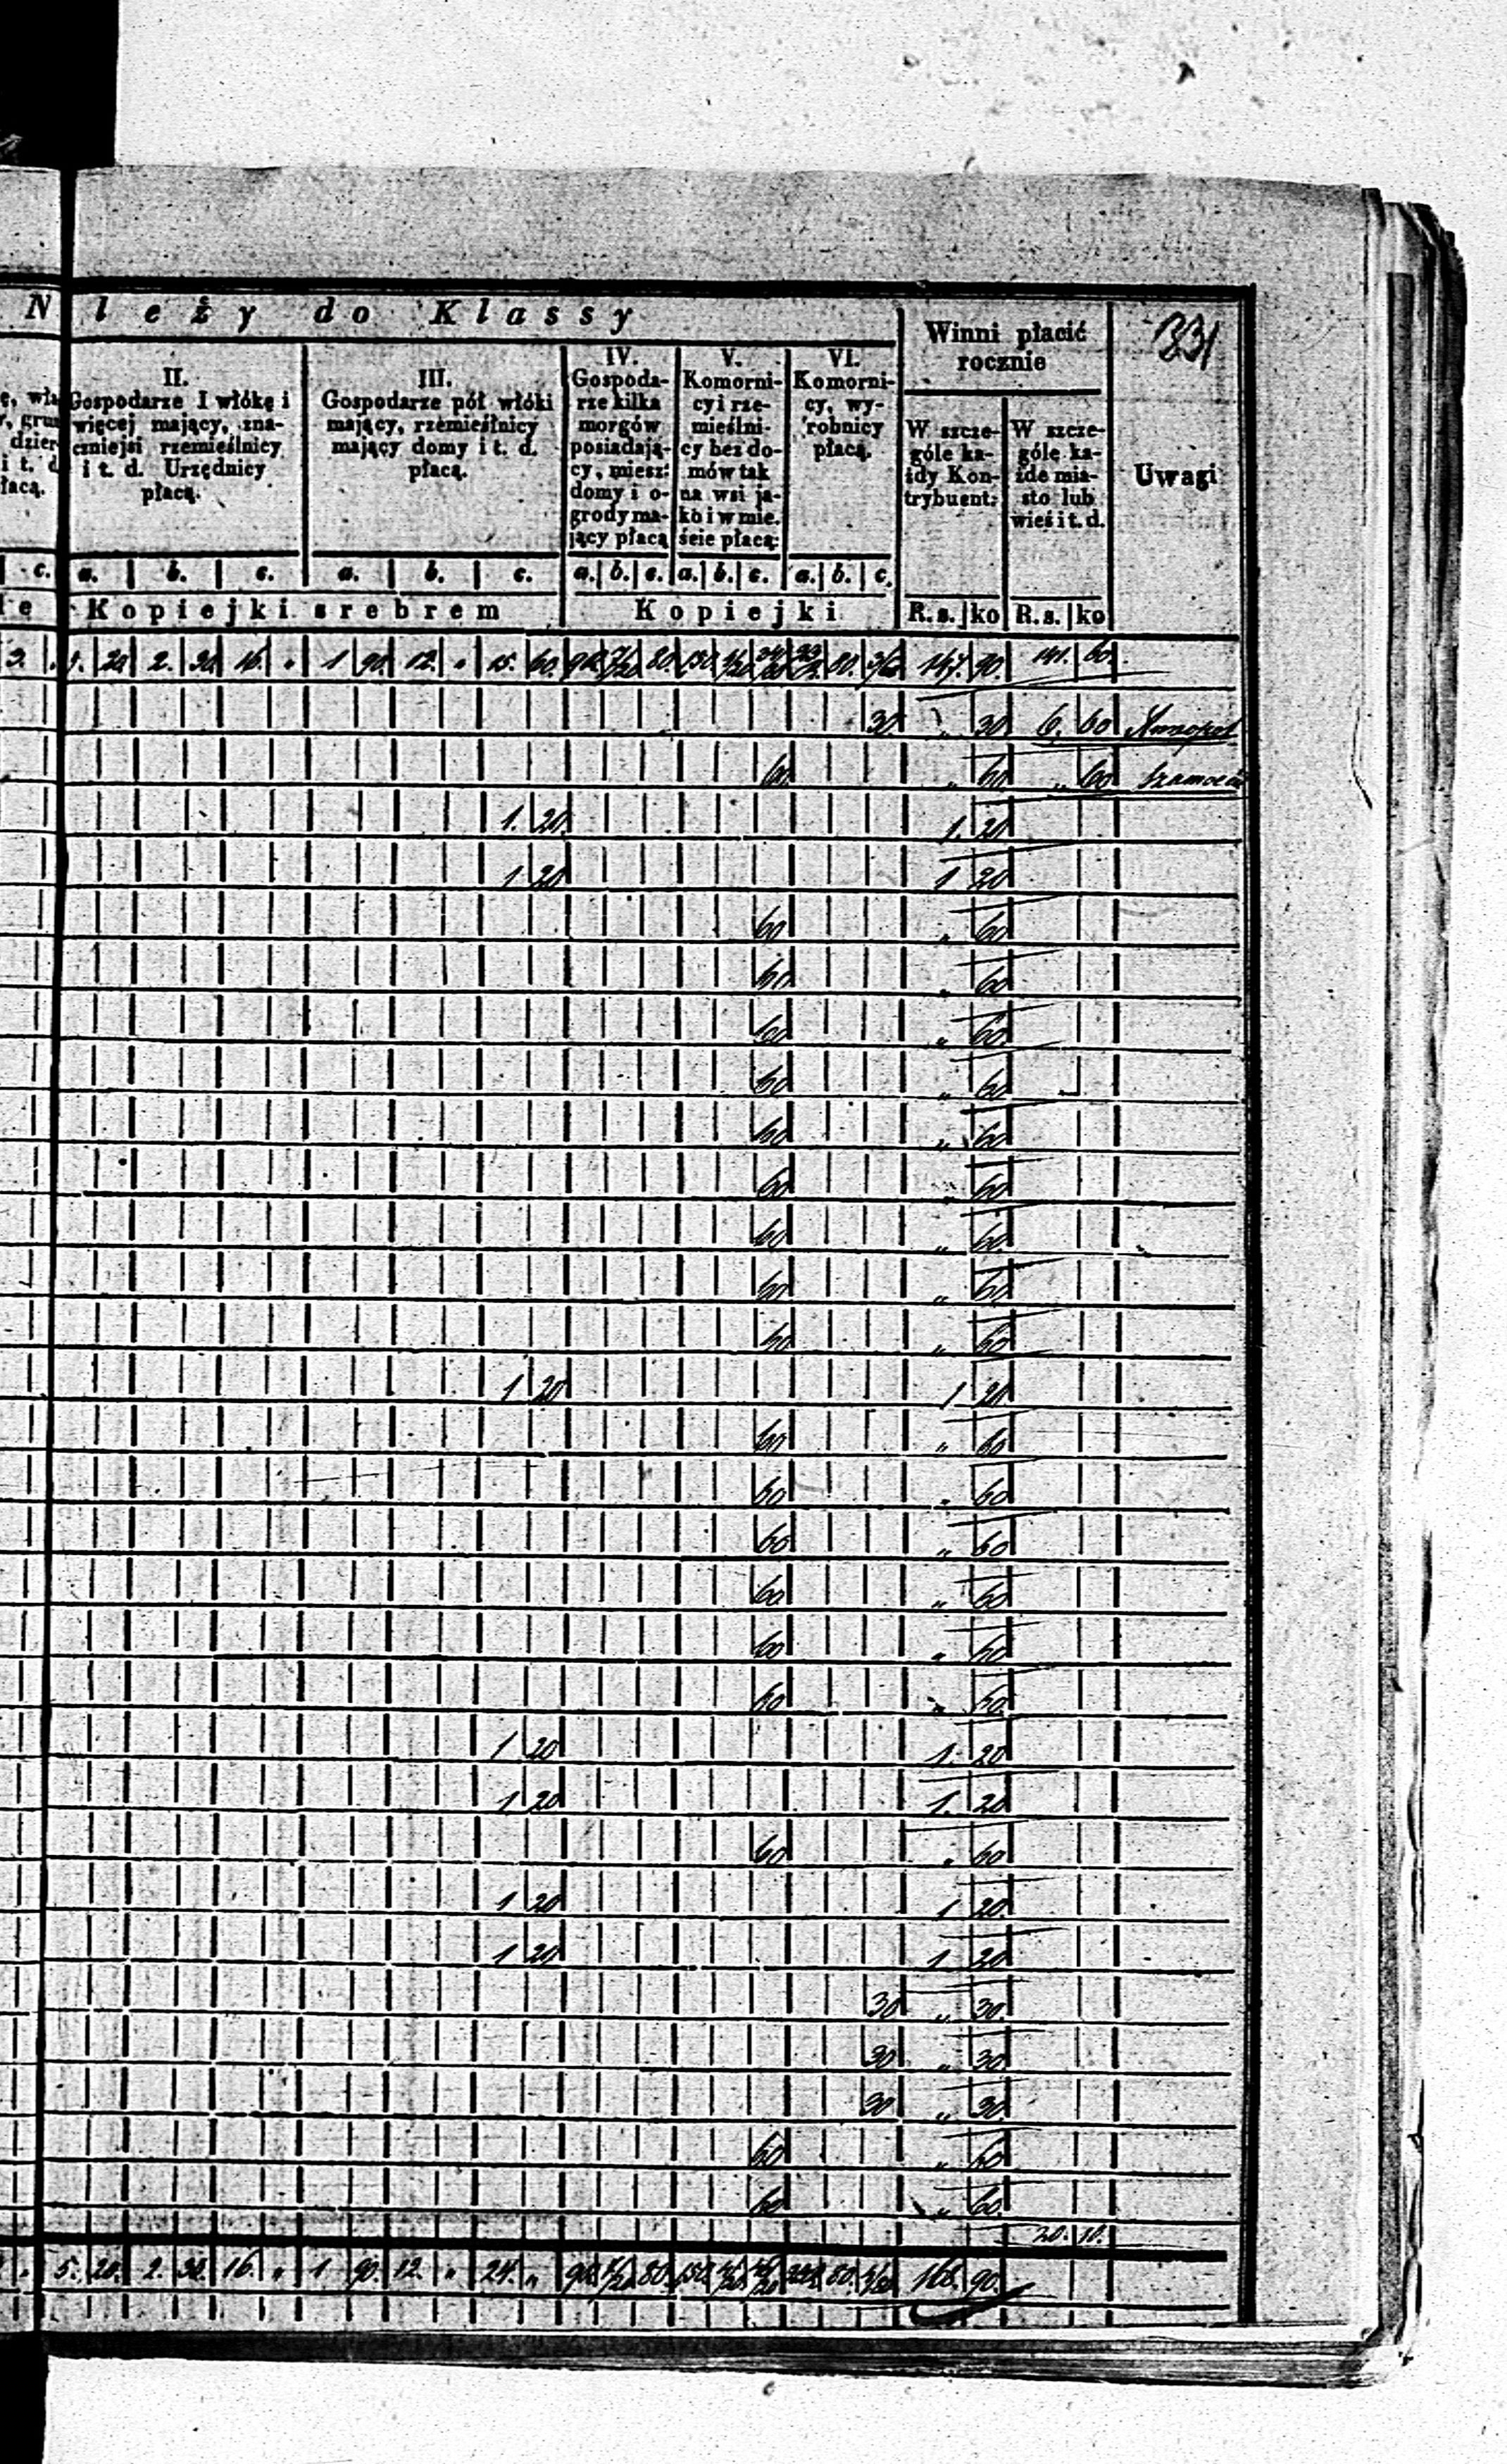 N leży do Klassy
Winni płacić
rocznie
331
II.
Gospodarze I włókę i
więcej mający, zna-
czniejsi rzemieślnicy
i t. d. Urzędnicy
płacą.
III.
Gospodarze pół włóki
mający, rzemieślnicy
mający domy i t. d.
płacą.
IV.
Gospoda-
rze kilka
morgów
posiadają-
cy, miesz:
domy i o-
grody ma-
jący płacą
V.
Komorni-
cy i rze-
mieślni-
cy bez do-
mów tak
na wsi ja-
ko i w mie.
ście płacą:
VI.
Komorni-
cy, wy-
robnicy
płacą.
W szcze-
góle ka-
żdy Kon-
trybuent:
W szcze-
góle ka-
żde mia-
sto lub
wieś i t. d.
Uwagi
c. a. b. c. a. b. c. a. b. c. a. b. c. a. b. c.
Kopiejki srebrem Kopiejki R. s. ko R. s. ko
20 2. 30 16. " 1 90 12. " 15. 60. 80. 150. 80. 147. 90. 141. 60.
30 " 30 6. 60
60 " 60 " 60
1. 20. 1. 20
1 20 1 20
60 " 60
60 " 60
60 " 60
60 " 60
60 " 60
60 " 60
60 " 60
60 " 60
60 " 60
1 20 1 20
60 " 60
60 " 60
60 " 60
60 " 60
60 " 60
60 " 60
1 20 1. 20
1 20 1. 20
60 " 60
1 20 1 20
1 20 1 20
30 " 30
30 " 30
30 " 30
60 " 60
60 " 60
20. 10.
5. 20. 2. 30. 16. " 1 90. 12. " 24. " 80. 150. 80. 168. 90.